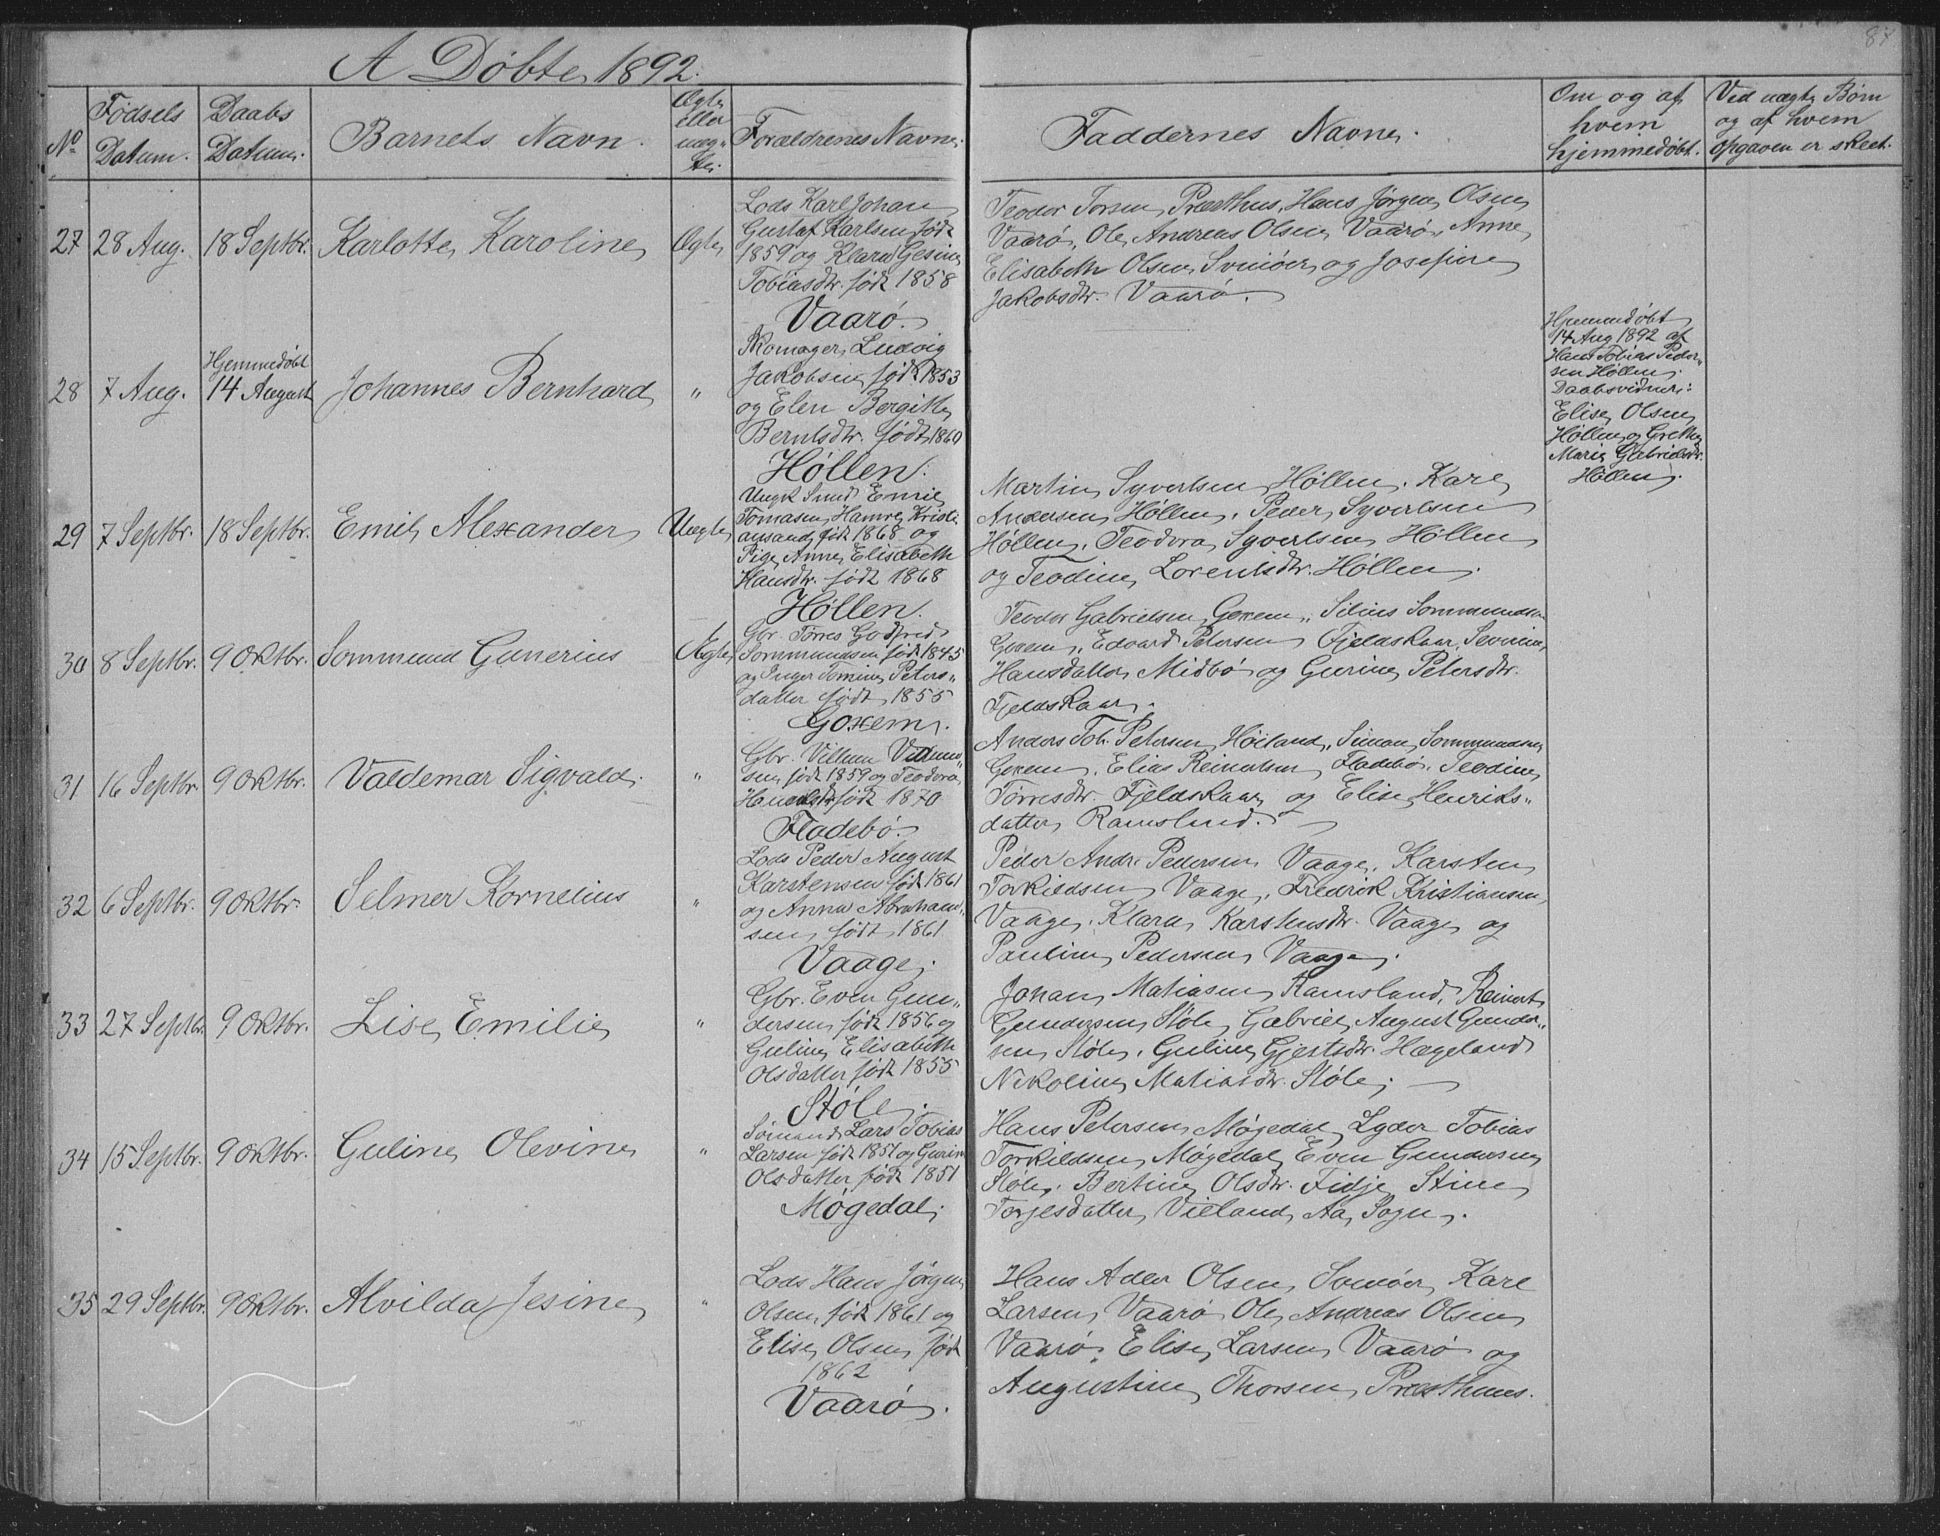 A Døbte 1892.
87
No
Fødsels Datum.
Daabs Datum.
Barnets Navn.
Ægte eller uægte.
Forældrenes Navne.
Faddernes Navne.
Om og af hvem hjemmedøbt.
Ved uægte Børn og af hvem opgaven er skeet.
27 28 Aug. 18 Septbr. Karlotte Karoline Ægte
Lods Karl Johan
Gustaf Karlsen født
1859 og Klara Gesine
Tobiasdtr. født 1858
Vaarø.
Teodor Torsen Præsthus, Hans Jørgen Olsen
Vaarø, Ole Andreas Olsen Vaarø, Anne
Elisabeth Olsen Svinøer og Josefine
Jakobsdtr. Vaarø.
28 7 Aug. Hjemmedøbt 14 August Johannes Bernhard "
Skomager Ludvig
Jakobsen født 1853
og Elen Bergitte
Berntsdtr. født 1860
Høllen.
Hjemmedøbt
14 Aug 1892 af
Hans Tobias Peder-
sen Høllen.
Daabsvidner:
Elise Olsen
Høllen og Grethe
Marie Gabrielsdtr.
Høllen.
29 7 Septbr. 18 Septbr. Emil Alexander Uægte
Ungk Smed Emil
Tomasen Hamre Kristi-
ansand født 1868 og
Pige Anne Elisabeth
Hansdtr. født 1868
Høllen.
Martin Syvertsen Høllen, Karl
Andersen Høllen, Peder Syvertsen
Høllen, Teodora Syvertsen Høllen
og Teodine Lorentsdtr. Høllen.
30 8 Septbr. 9 Oktbr. Sommund Gunerius Ægte
Gbr. Tørres Godfred
Sommundsen født 1845
og Inger Tomine Peters-
datter født 1855
Goxem.
Teodor Gabrielsen Goxem, Silius Sommundsen
Goxem, Edvard Petersen Fjeldskaar, Severine
Hansdatter Midbø og Gurine Petersdtr.
Fjeldskaar.
31 16 Septbr. 9 Oktbr. Valdemar Sigvald. "
Gbr. Villum Villum-
sen født 1859 og Teodora
født 1870
Fladebø.
Anders Tob. Petersen Høiland, Simon Sommundsen
Goxem, Elias Reinertsen Fladebø, Teodine
Tørresdtr. Fjeldskaar og Elise Henriks-
datter Ramsland.
32 6 Septbr. 9 Oktbr. Selmer Kornelius "
Lods Peder August
Karstensen født 1861
og Anna Abraham-
sen født 1861
Vaage.
Peder Andr. Pedersen Vaage, Karsten
Torkildsen Vaage, Fredrik Kristiansen
Vaage, Klara Karstensdtr. Vaage og
Pauline Pedersen Vaage.
33 27 Septbr. 9 Oktbr. Lise Emilie "
Gbr. Even Gun-
dersen født 1856 og
Guline Elisabeth
Olsdatter født 1855
Støle.
Johan Matiasen Ramsland, Reinert
Gundersen Støle, Gabriel August Gunder-
sen Støle, Guline Gjertsdtr. Hægeland
Nikoline Matiasdtr. Støle.
34 15 Septbr. 9 Oktbr. Guline Olevine "
Sømand Lars Tobias
Larsen født 1851 og Gurine
Olsdatter født 1851
Møgedal.
Hans Petersen Møgedal, Lyder Tobias
Torkildsen Møgedal, Even Gundersen
Støle, Bertine Olsdtr. Fidje, Stine
Torjesdatter Vieland, Aa Sogn.
35 29 Septbr. 9 Oktbr. Alvilda Jesine "
Lods Hans Jørgen
Olsen født 1861 og
Elise Olsen født
1862
Vaarø.
Hans Adler Olsen Svinøer, Karl
Larsen Vaarø, Ole Andreas Olsen
Vaarø, Elise Larsen Vaarø og
Augustine Thorsen Præsthuus.